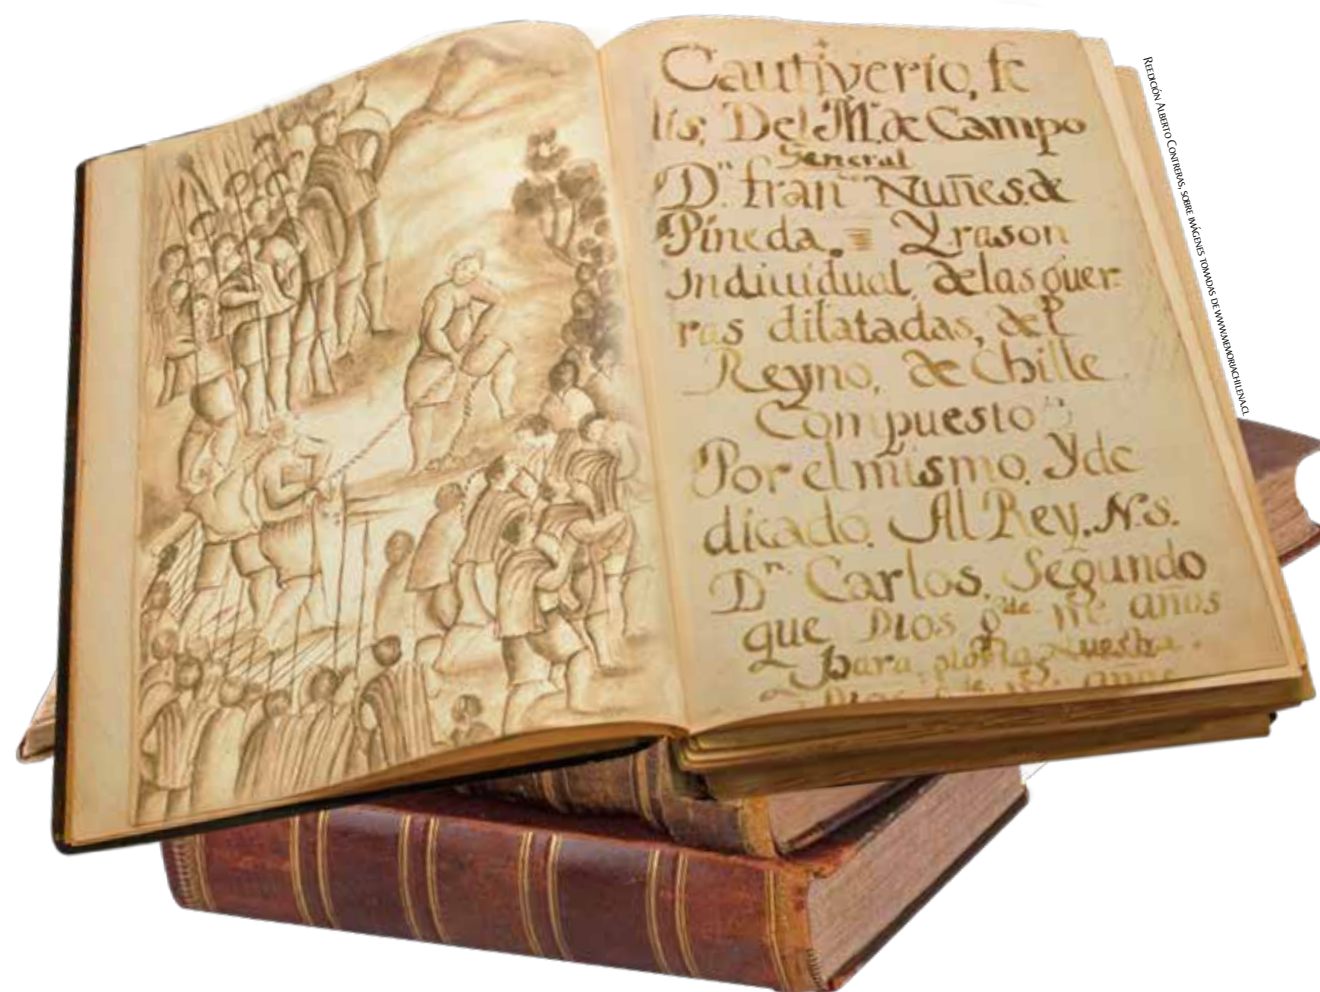 Cautiverio, fe
lis, Del M. de Campo
General
D.n fran.co Nuñes de
Pineda, Y rason
indiuidual, de las guer-
ras dilatadas, del
Reyno, de Chille
Compuesto
Por el mismo, Y de
dicado, Al Rey, N.S.
D.n Carlos, Segundo
que Dios g.de m.s años
para nuestra
REEDICIÓN ALBERTO CONTRERAS, SOBRE IMÁGENES TOMADAS DE WWW.MEMORIACHILENA.CL